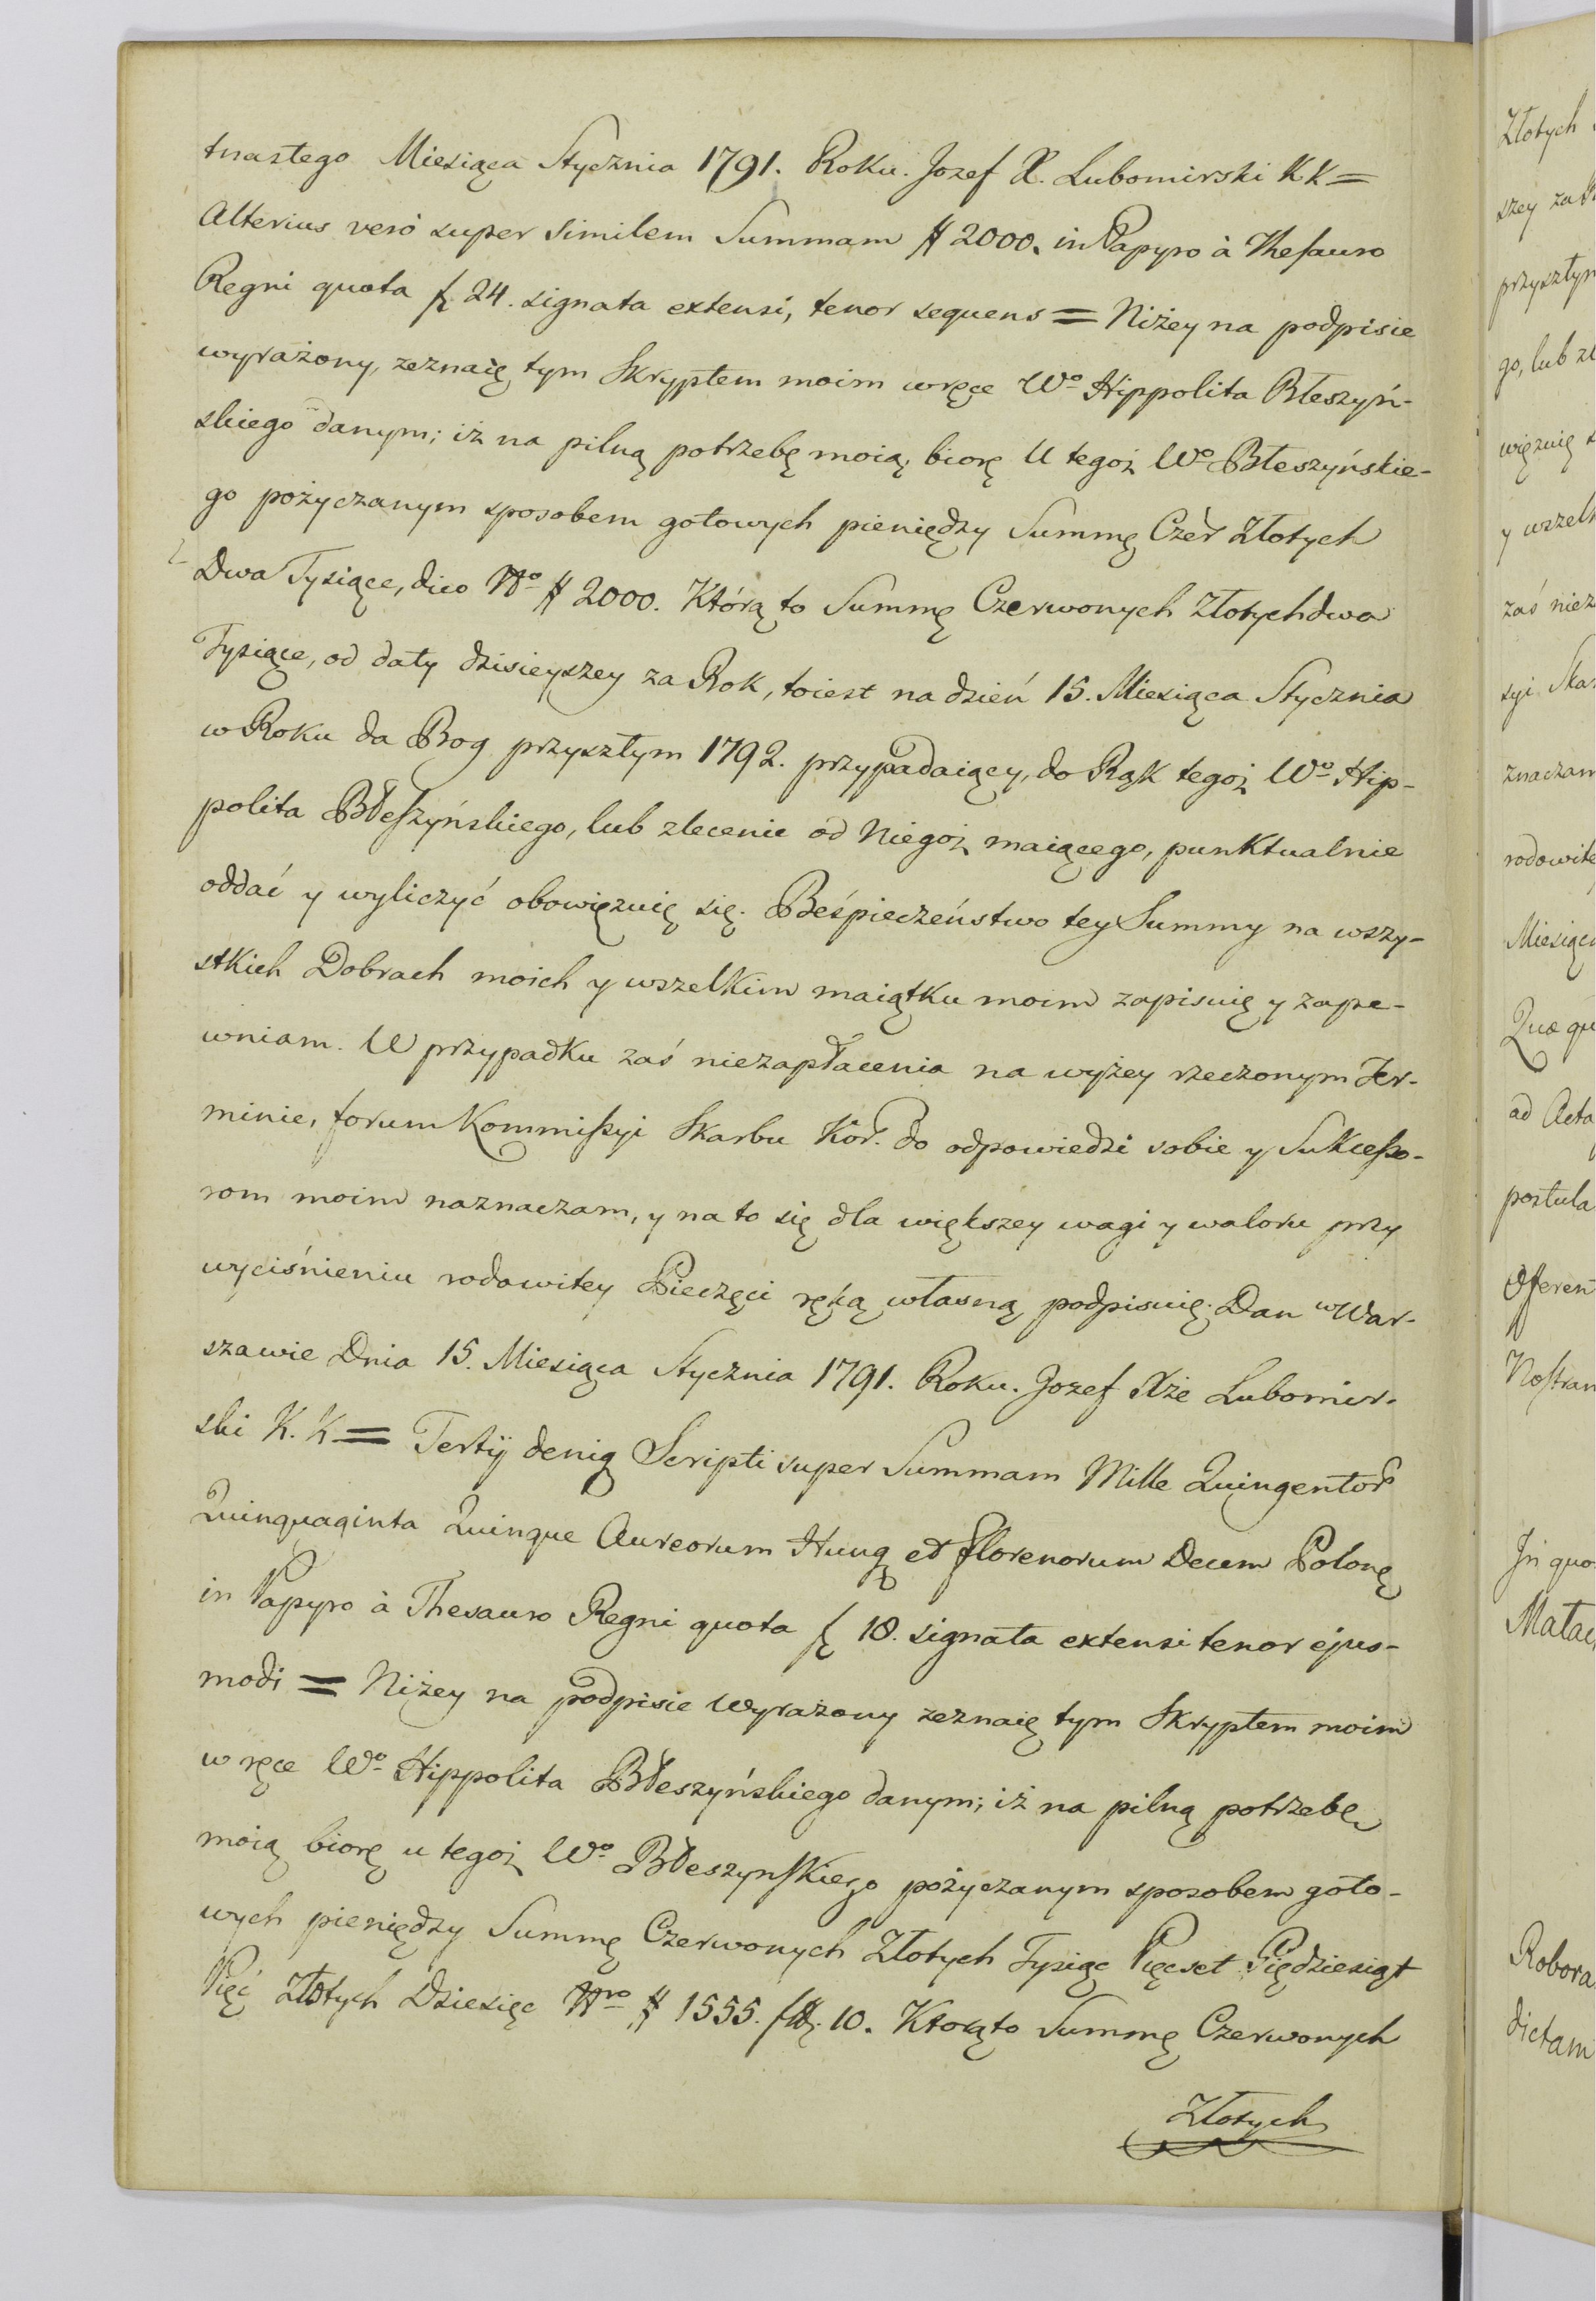 tnastego Miesiąca Stycznia 1791. Roku. Jozef X. Lubomirski KK =
Alterius verò super similem Summam # 2000. in Papyro à Thesauro
Regni quota fł 24. signata extensi, tenor sequens = Niżey na podpisie
wyrażony, zeznaię tym Skryptem moim wręce Wo Hippolita Błeszyń-
skiego danym; iż na pilną potrzebę moią, biorę U tegoż Wo Błeszyńskie-
go pożyczanym sposobem gotowych pieniędzy Summę Czer Złotych
Dwa Tysiące, dico No # 2000. Którą to Summę Czerwonych Złotych dwa
Tysiące, od daty dzisieyszey za Rok, toiest na dzień 15. Miesiąca Stycznia
w Roku da Bog przyszłym 1792. przypadaiący, do Rąk tegoż Wo Hip-
polita Błeszyńskiego, lub zlecenie od Niegoż maiącego, punktualnie
oddać y wyliczyć obowięzuię się. Beśpieczeństwo tey Summy na wszy-
stkich Dobrach moich y wszelkim maiątku moim zapisuię y zape-
wniam. W przypadku zaś niezapłacenia na wyżey rzeczonym Ter-
minie, forum Kommissyi Skarbu Kor. do odpowiedzi sobie y Sukcesso-
rom moim naznaczam, y na to się dla większey wagi y waloru przy
wyciśnieniu rodowitey Pieczęci ręką własną podpisuię. Dan w War-
szawie Dnia 15. Miesiąca Stycznia 1791. Roku. Jozef Xże Lubomir-
ski K. K = Tertij deniq Scripti super Summam Mille Quingentor
Quinquaginta Quinque Aureorum Hung et florenorum Decem Polon
in Papyro à Thesauro Regni quota fł 18. signata extensi tenor ejus-
modi = Niżey na podpisie Wyrażony zeznaię tym Skryptem moim
w ręce Wo Hippolita Błeszyńskiego danym; iż na pilną potrzebę
moią biorę u tegoż Wo Błeszynskiego pożyczanym sposobem goto-
wych pieniędzy Summę Czerwonych Złotych Tysiąc Pięcset Piędziesiąt
Pięć Złotych Dziesięć Nro # 1555. fł 10. Ktorą to Summę Czerwonych
Złotych
Złotych
szey
przyszłym
go, lub zl
więzuię
y wszel
zaś niez
syi Ska
znaczam
rodowite
Miesiąca
Quæ qu
ad Acta
postula
Oferen
Nostran
In quo
Robora
dictam